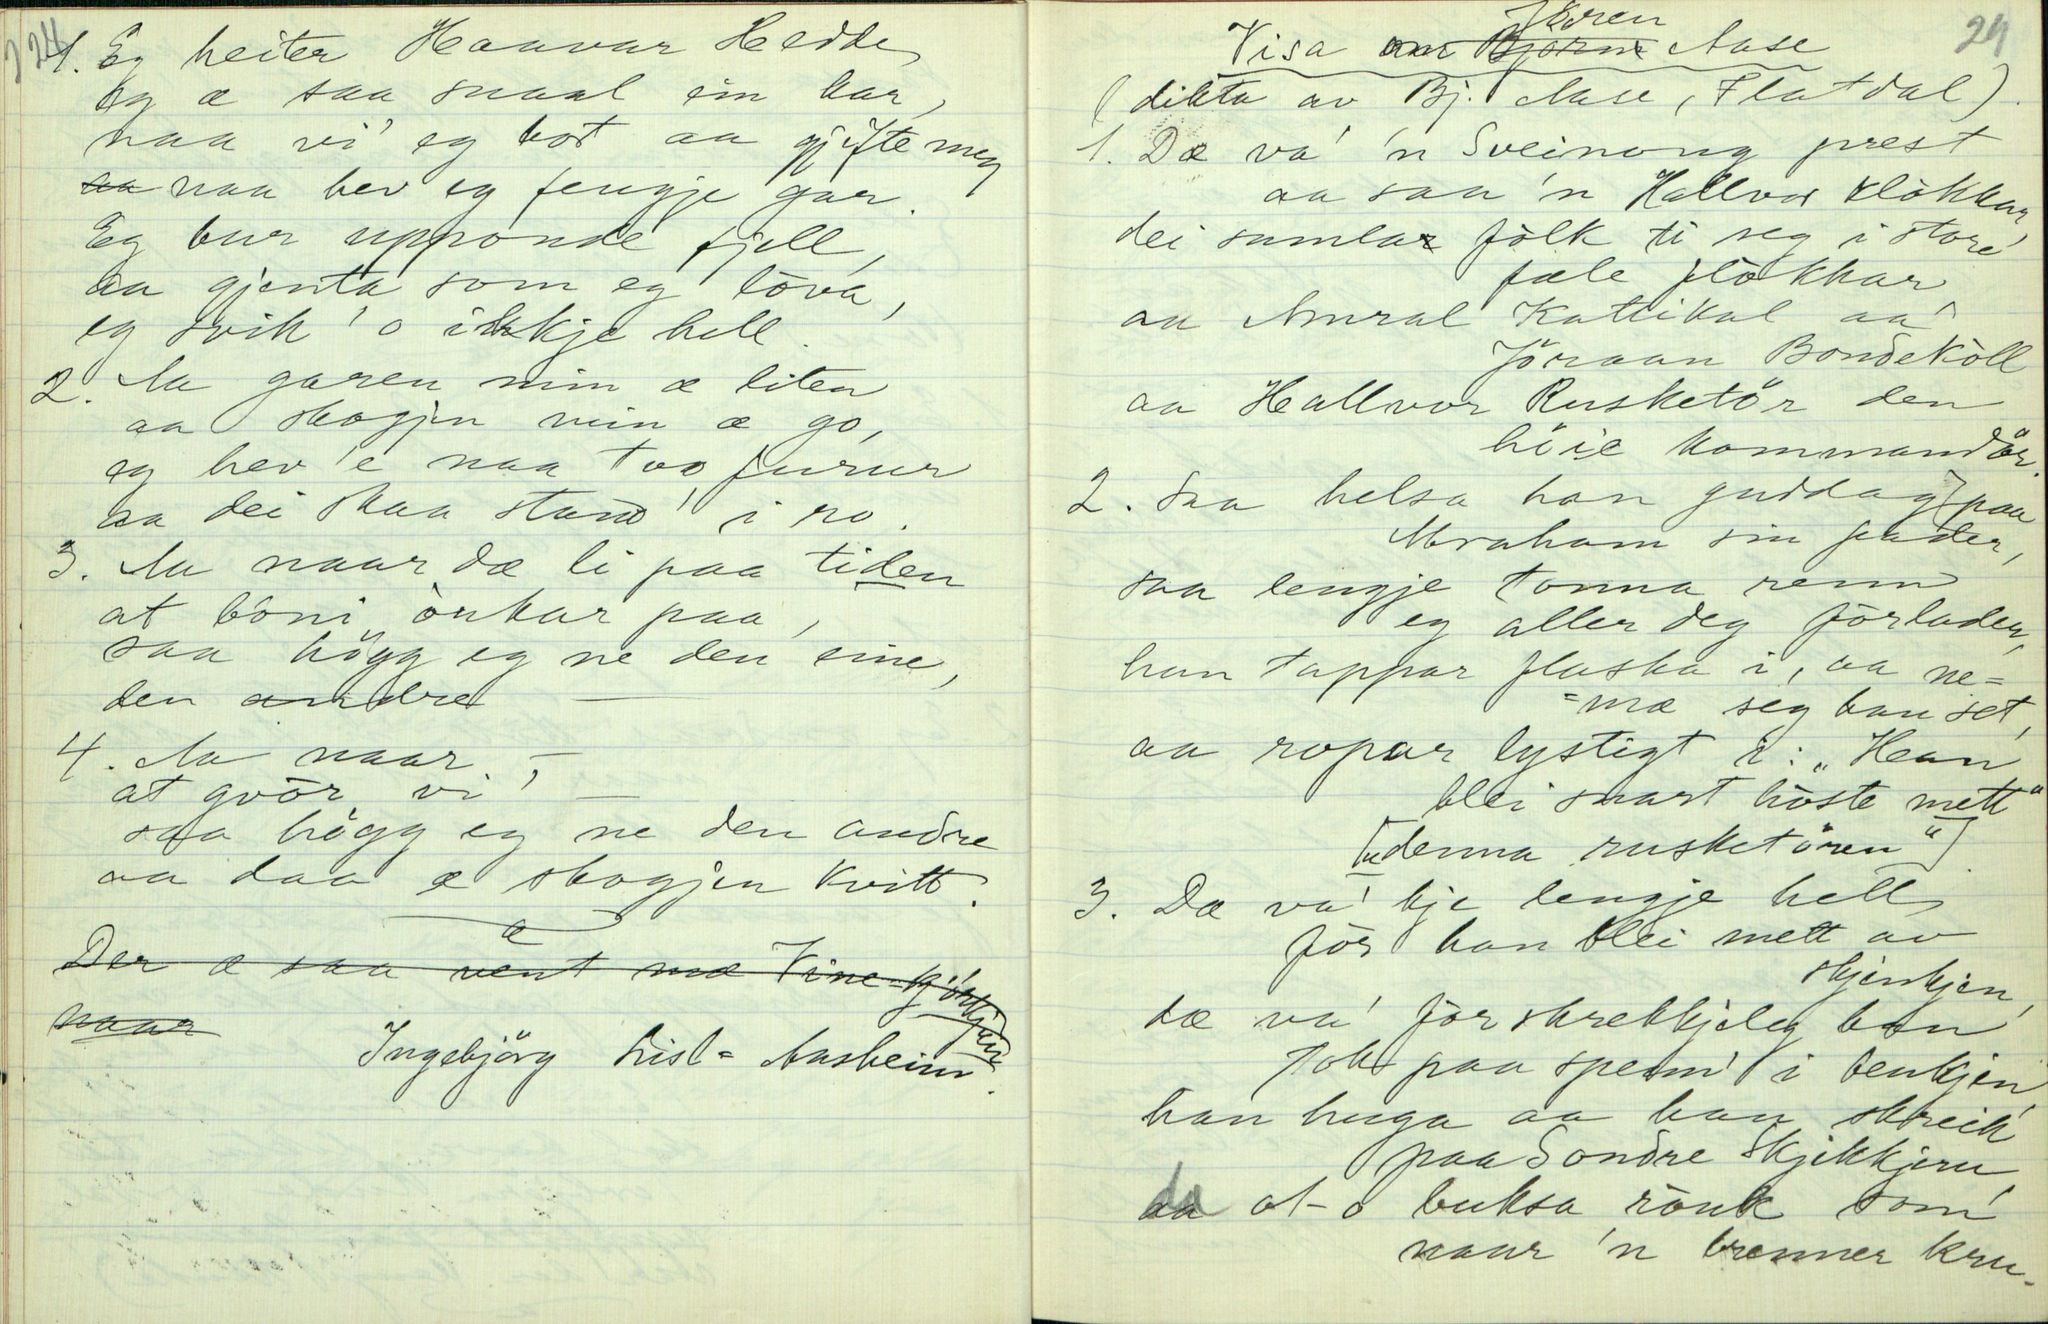 224
1. Eg heiter Haavar Hedde
eg æ saa snaal ein kar,
naa vi' eg bot aa gjifte meg
aa naa hev eg fengje gar.
Eg bur upponde fjell,
aa gjenta som eg lova',
eg svik 'o ikkje hell.
2. Aa garen min æ liten
aa skogjen min æ go,
eg hev 'e naa tvo furur
aa dei skaa stand' i ro.
3. Aa naar dæ li paa tiden
at boni örkar paa,
saa högg eg ne den eine,
den andre —
4. Aa naar, —
at gvör vi' —
saa högg eg ne den andre
aa daa æ skogjen kvitt.
Der æ saa vent mæ Vine-kjörkjun
naar
Ingebjörg Lisl-Aasheim.
24
Visa om Bjørn Jøren Aase
(dikta av Bj. Aase, Flatdal)
1. Dæ va' 'n Sveinong prest
aa saa 'n Hallvor klökkar,
dei samlar fölk ti seg i store
fæle flökkar,
aa Amral Kattikal aa
Jöraan Bondeköll
aa Hallvor Rusketör den
höie kommandör.
2. Saa helsa han guddag paa
Abraham sin fader,
saa lengje tonna renn
eg aller deg förlader,
han tappar flaska i, aa ne=
=mæ seg han set,
aa ropar lystigt i: „Han
blei snart höste mett"
[„denna rusketören"]
3. Dæ va' kje lengje hell
för han blei mett av
skjenkjen,
dæ va' förskrekkjeleg han
tok paa spenn' i benkjen,
han huga aa han skreik
paa Sondre Skjekkjeru,
da at-o buksa rouk som
naar 'n brenner kru-